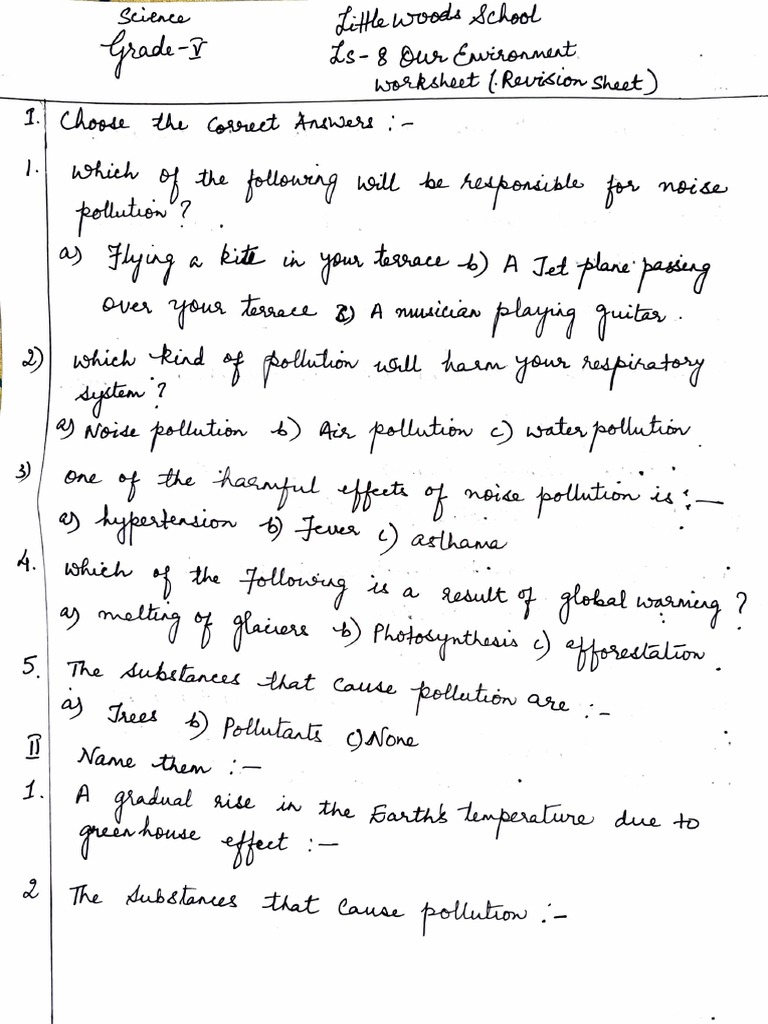 Science
Grade-V
Little Woods School
Ls-8 Our Environment
Worksheet (Revision Sheet)
I. Choose the correct Answers :-
1. Which of the following will be responsible for noise
pollution?
a) Flying a kite in your terrace b) A Jet plane passing
over your terrace c) A musician playing guitar.
2) Which kind of pollution will harm your respiratory
system?
a) Noise pollution b) Air pollution c) water pollution
3) One of the harmful effects of noise pollution is :-
a) hypertension b) Fever c) asthama
4. Which of the following is a result of global warming?
a) melting of glaciers b) Photosynthesis c) afforestation
5. The substances that cause pollution are :-
a) Trees b) Pollutants c) None
II Name them :-
1. A gradual rise in the Earth's temperature due to
greenhouse effect :-
2 The substances that cause pollution :-